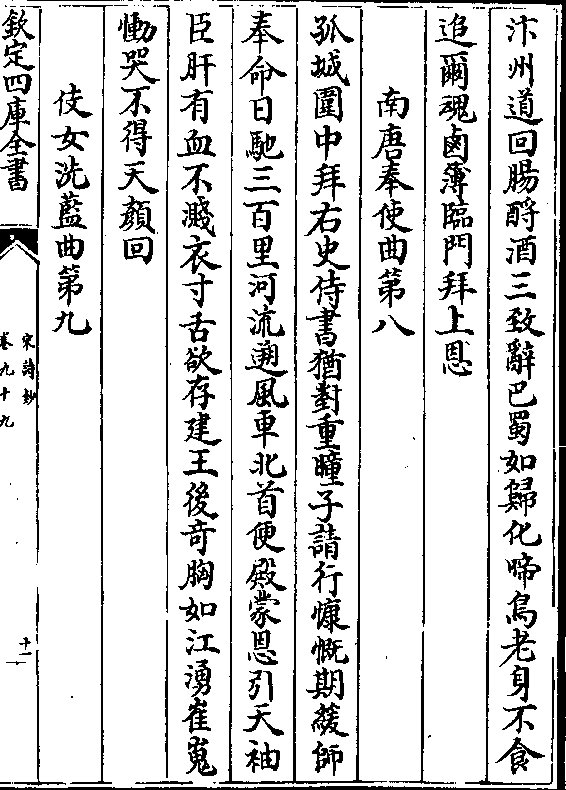 汴州道回腸酹酒三致辭巴蜀如歸化啼烏老身不食
追爾魂鹵簿臨門拜上恩
南唐奉使曲第八
孤城圍中拜右史侍書猶對重瞳子請行慷慨期緩師
奉命日馳三百里河流遡風車北首便殿蒙恩引天袖
臣肝有血不濺衣寸舌欲存建王後奇胸如江湧崔嵬
慟哭不得天顏回
伎女洗藍曲第九
欽定四庫全書
宋詩鈔
卷九十九
十一